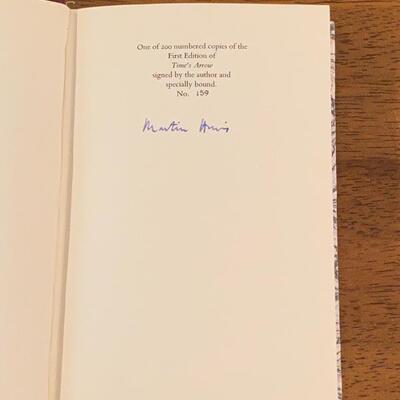 One of 200 numbered copies of the
First Edition of
Time's Arrow
signed by the author and
specially bound.
No. 159
Martin Amis